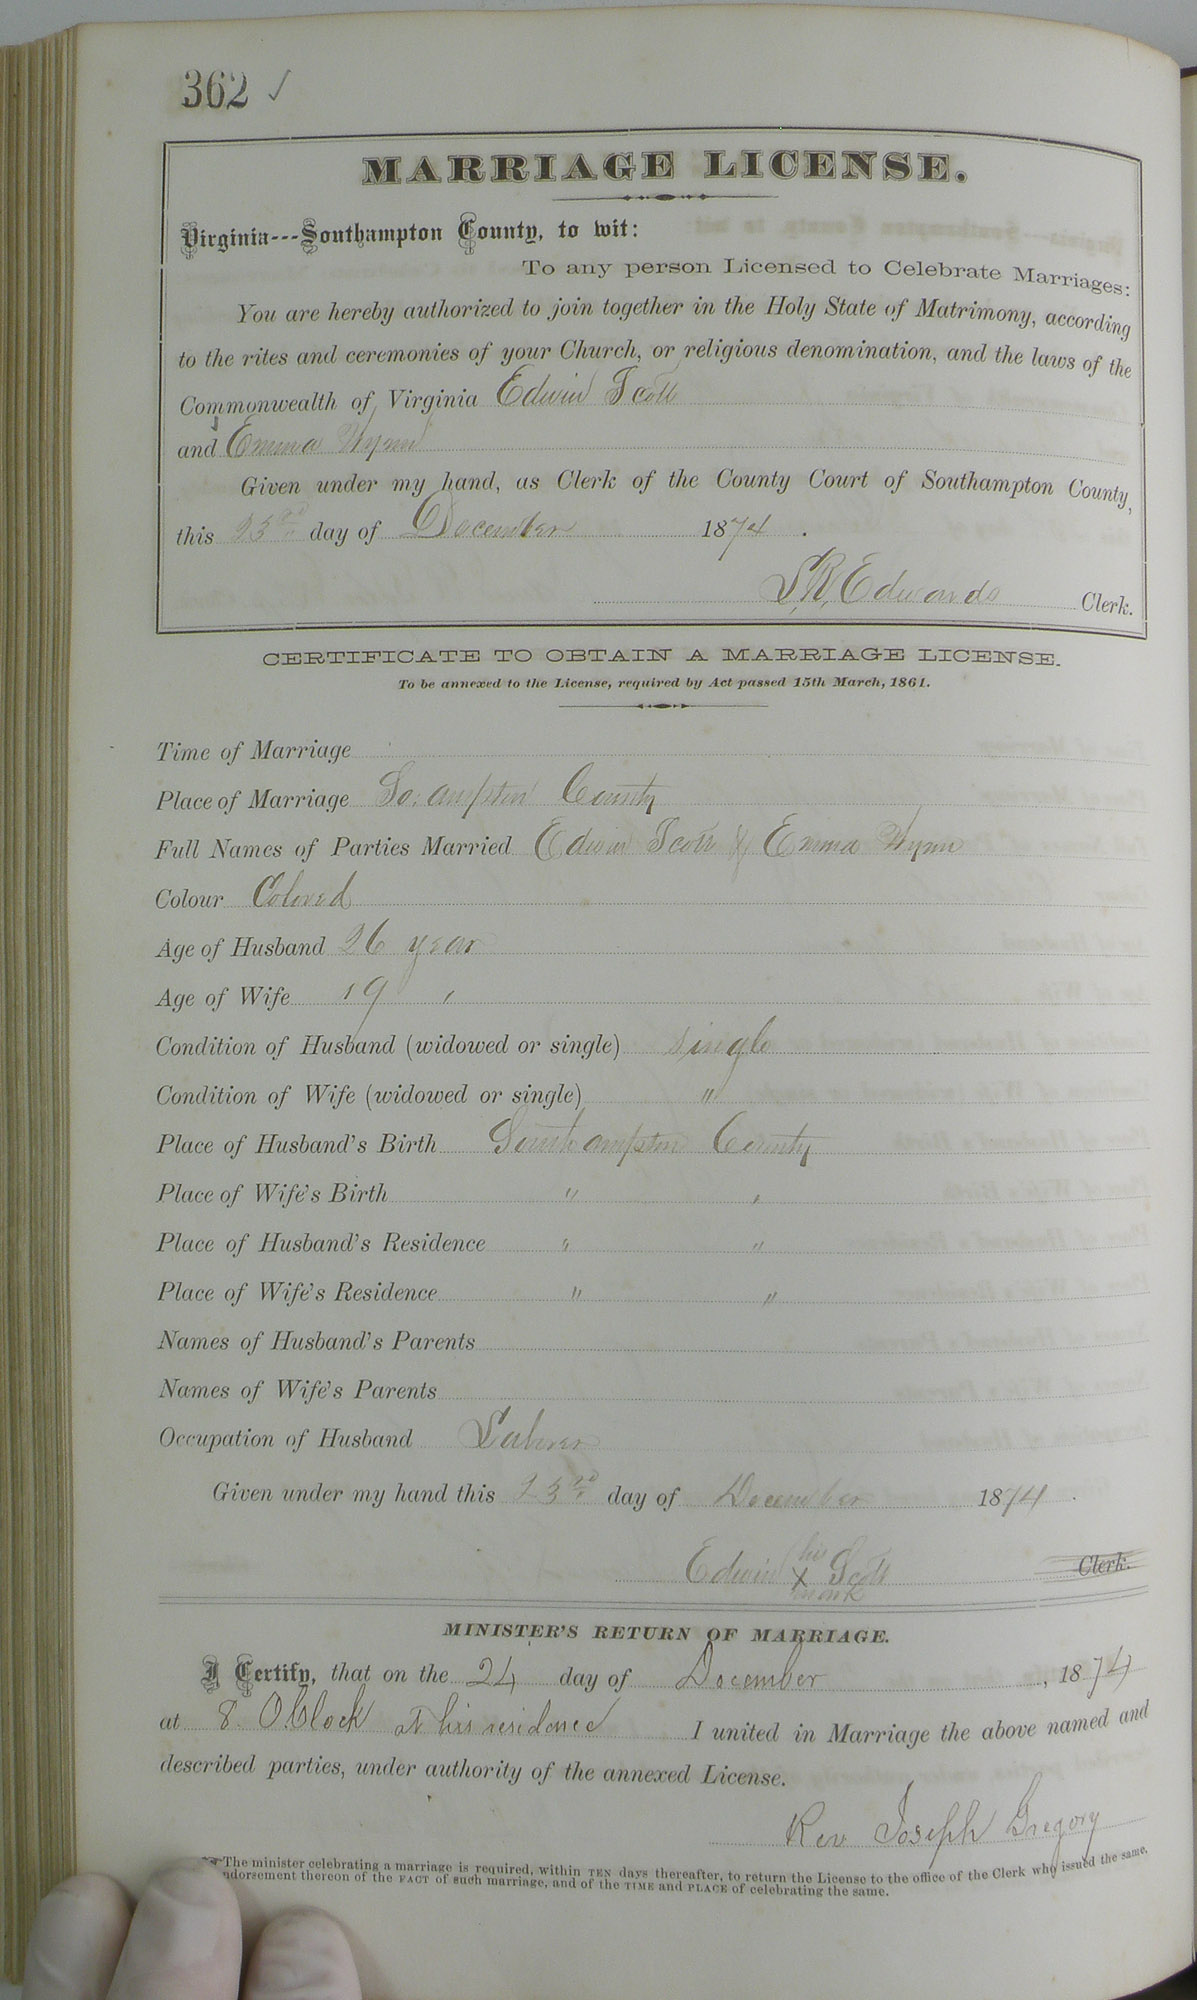 362 ✓
MARRIAGE LICENSE.
Virginia---Southampton County, to wit:
To any person Licensed to Celebrate Marriages:
You are hereby authorized to join together in the Holy State of Matrimony, according
to the rites and ceremonies of your Church, or religious denomination, and the laws of the
Commonwealth of Virginia Edwin Scott
and Emma Wynn
Given under my hand, as Clerk of the County Court of Southampton County,
this 23rd day of December 1874.
L. R. Edwards Clerk.
CERTIFICATE TO OBTAIN A MARRIAGE LICENSE.
To be annexed to the License, required by Act passed 15th March, 1861.
Time of Marriage
Place of Marriage So.ampton County
Full Names of Parties Married Edwin Scott & Emma Wynn
Colour Colored
Age of Husband 26 year
Age of Wife 19 "
Condition of Husband (widowed or single) single
Condition of Wife (widowed or single) "
Place of Husband's Birth Southampton County
Place of Wife's Birth " "
Place of Husband's Residence " "
Place of Wife's Residence " "
Names of Husband's Parents
Names of Wife's Parents
Occupation of Husband Labrer
Given under my hand this 23rd day of December 1874.
his
Edwin X Scott Clerk.
mark
MINISTER'S RETURN OF MARRIAGE.
I Certify, that on the 24 day of December, 1874
at 8. OClock at his residence I united in Marriage the above named and
described parties, under authority of the annexed License.
Rev Joseph Gregory
The minister celebrating a marriage is required, within TEN days thereafter, to return the License to the office of the Clerk who issued the same,
ndorsement thereon of the FACT of such marriage, and of the TIME and PLACE of celebrating the same.